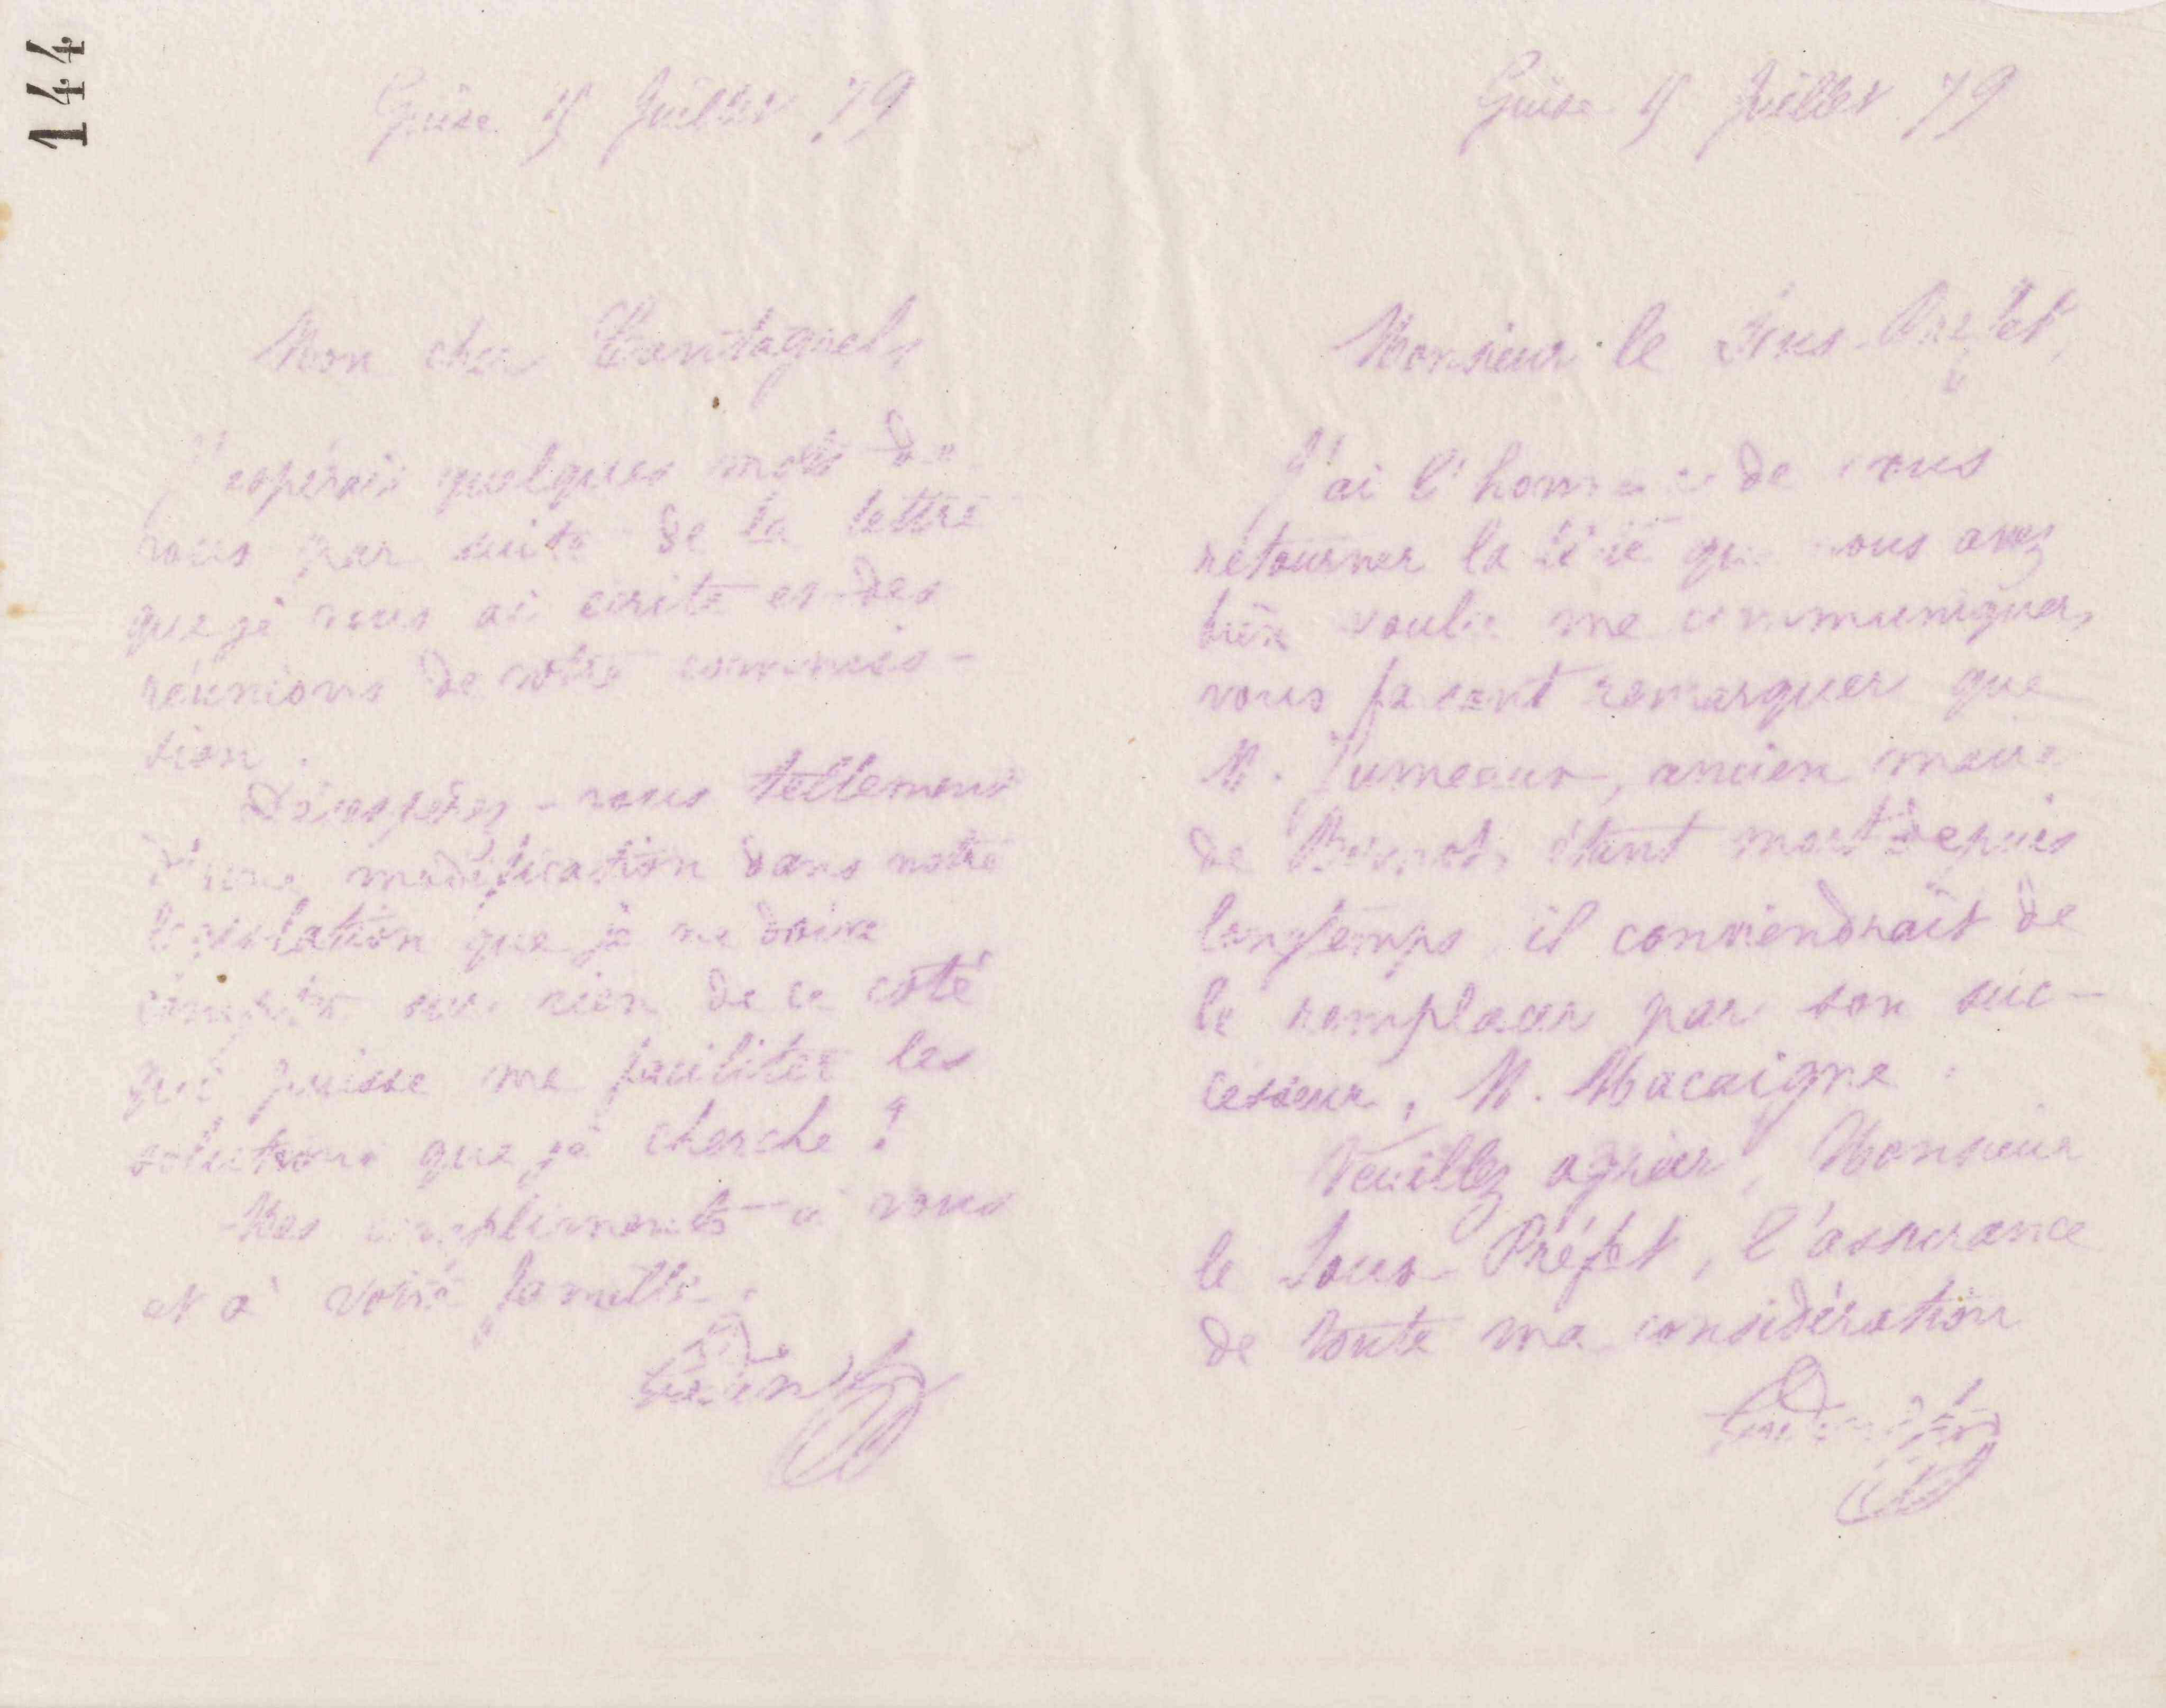 144
Guise 15 Juillet 79
Mon cher Cantagrel,
J'espérais quelques mots de
vous par suite de la lettre
que je vous ai écrite et des
réunions de votre commis-
sion.
Désespérez-vous tellement
d'une modification dans notre
législation que je ne doive
compter sur rien de ce côté
qui puisse me faciliter les
solutions que je cherche ?
Mes compliments à vous
et à votre famille.
Godin
Guise 15 Juillet 79
Monsieur le Sous-Préfet,
J'ai l'honneur de vous
retourner la que vous avez
bien voulu me communiquer,
vous faisant remarquer que
M. Jumeaux, ancien maire
de Bernot, étant mort depuis
longtemps, il conviendrait de
le remplacer par son suc-
cesseur, M. Macaigne.
Veuillez agréer, Monsieur
le Sous-Préfet, l'assurance
de toute ma considération
Godin